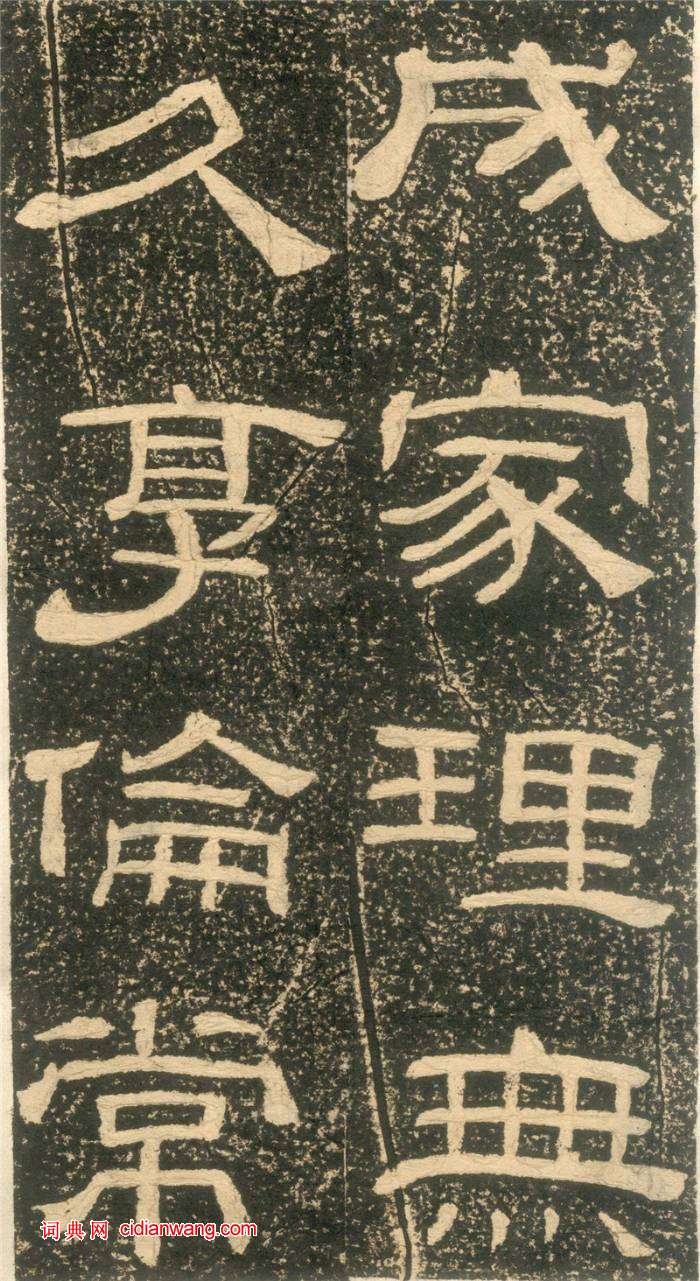 成家理無
久享倫常
词典网 cidianwang.com